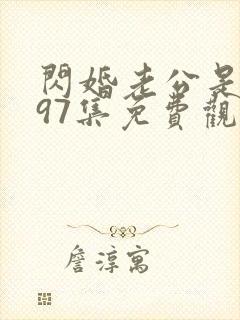 閃婚老公是
97集免費觀
詹淳寓